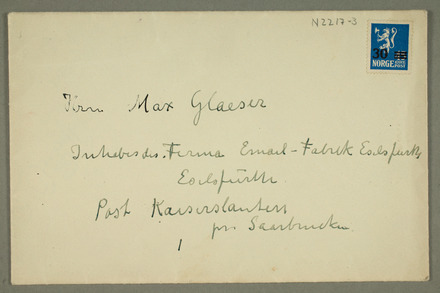 N2217-3
30
NORGE
Herrn Max Glaeser
Inhaber der Firma Email-Fabrik Eselsfürth
Eselsfürth
Post Kaiserslautern
pr. Saarbrücken